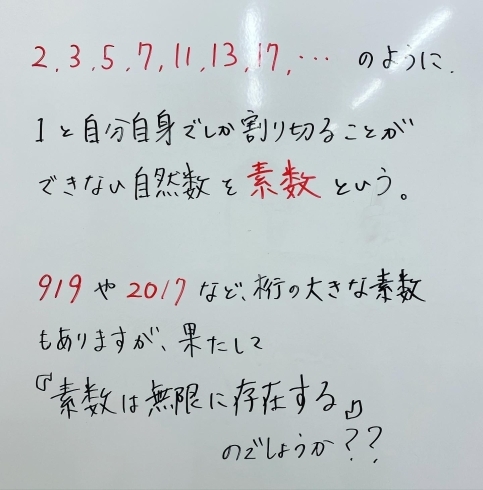 2, 3, 5, 7, 11, 13, 17, … のように、
1と自分自身でしか割り切ることが
できない自然数を素数という。
919や2017など、桁の大きな素数
もありますが、果たして
『素数は無限に存在する』
のでしょうか??